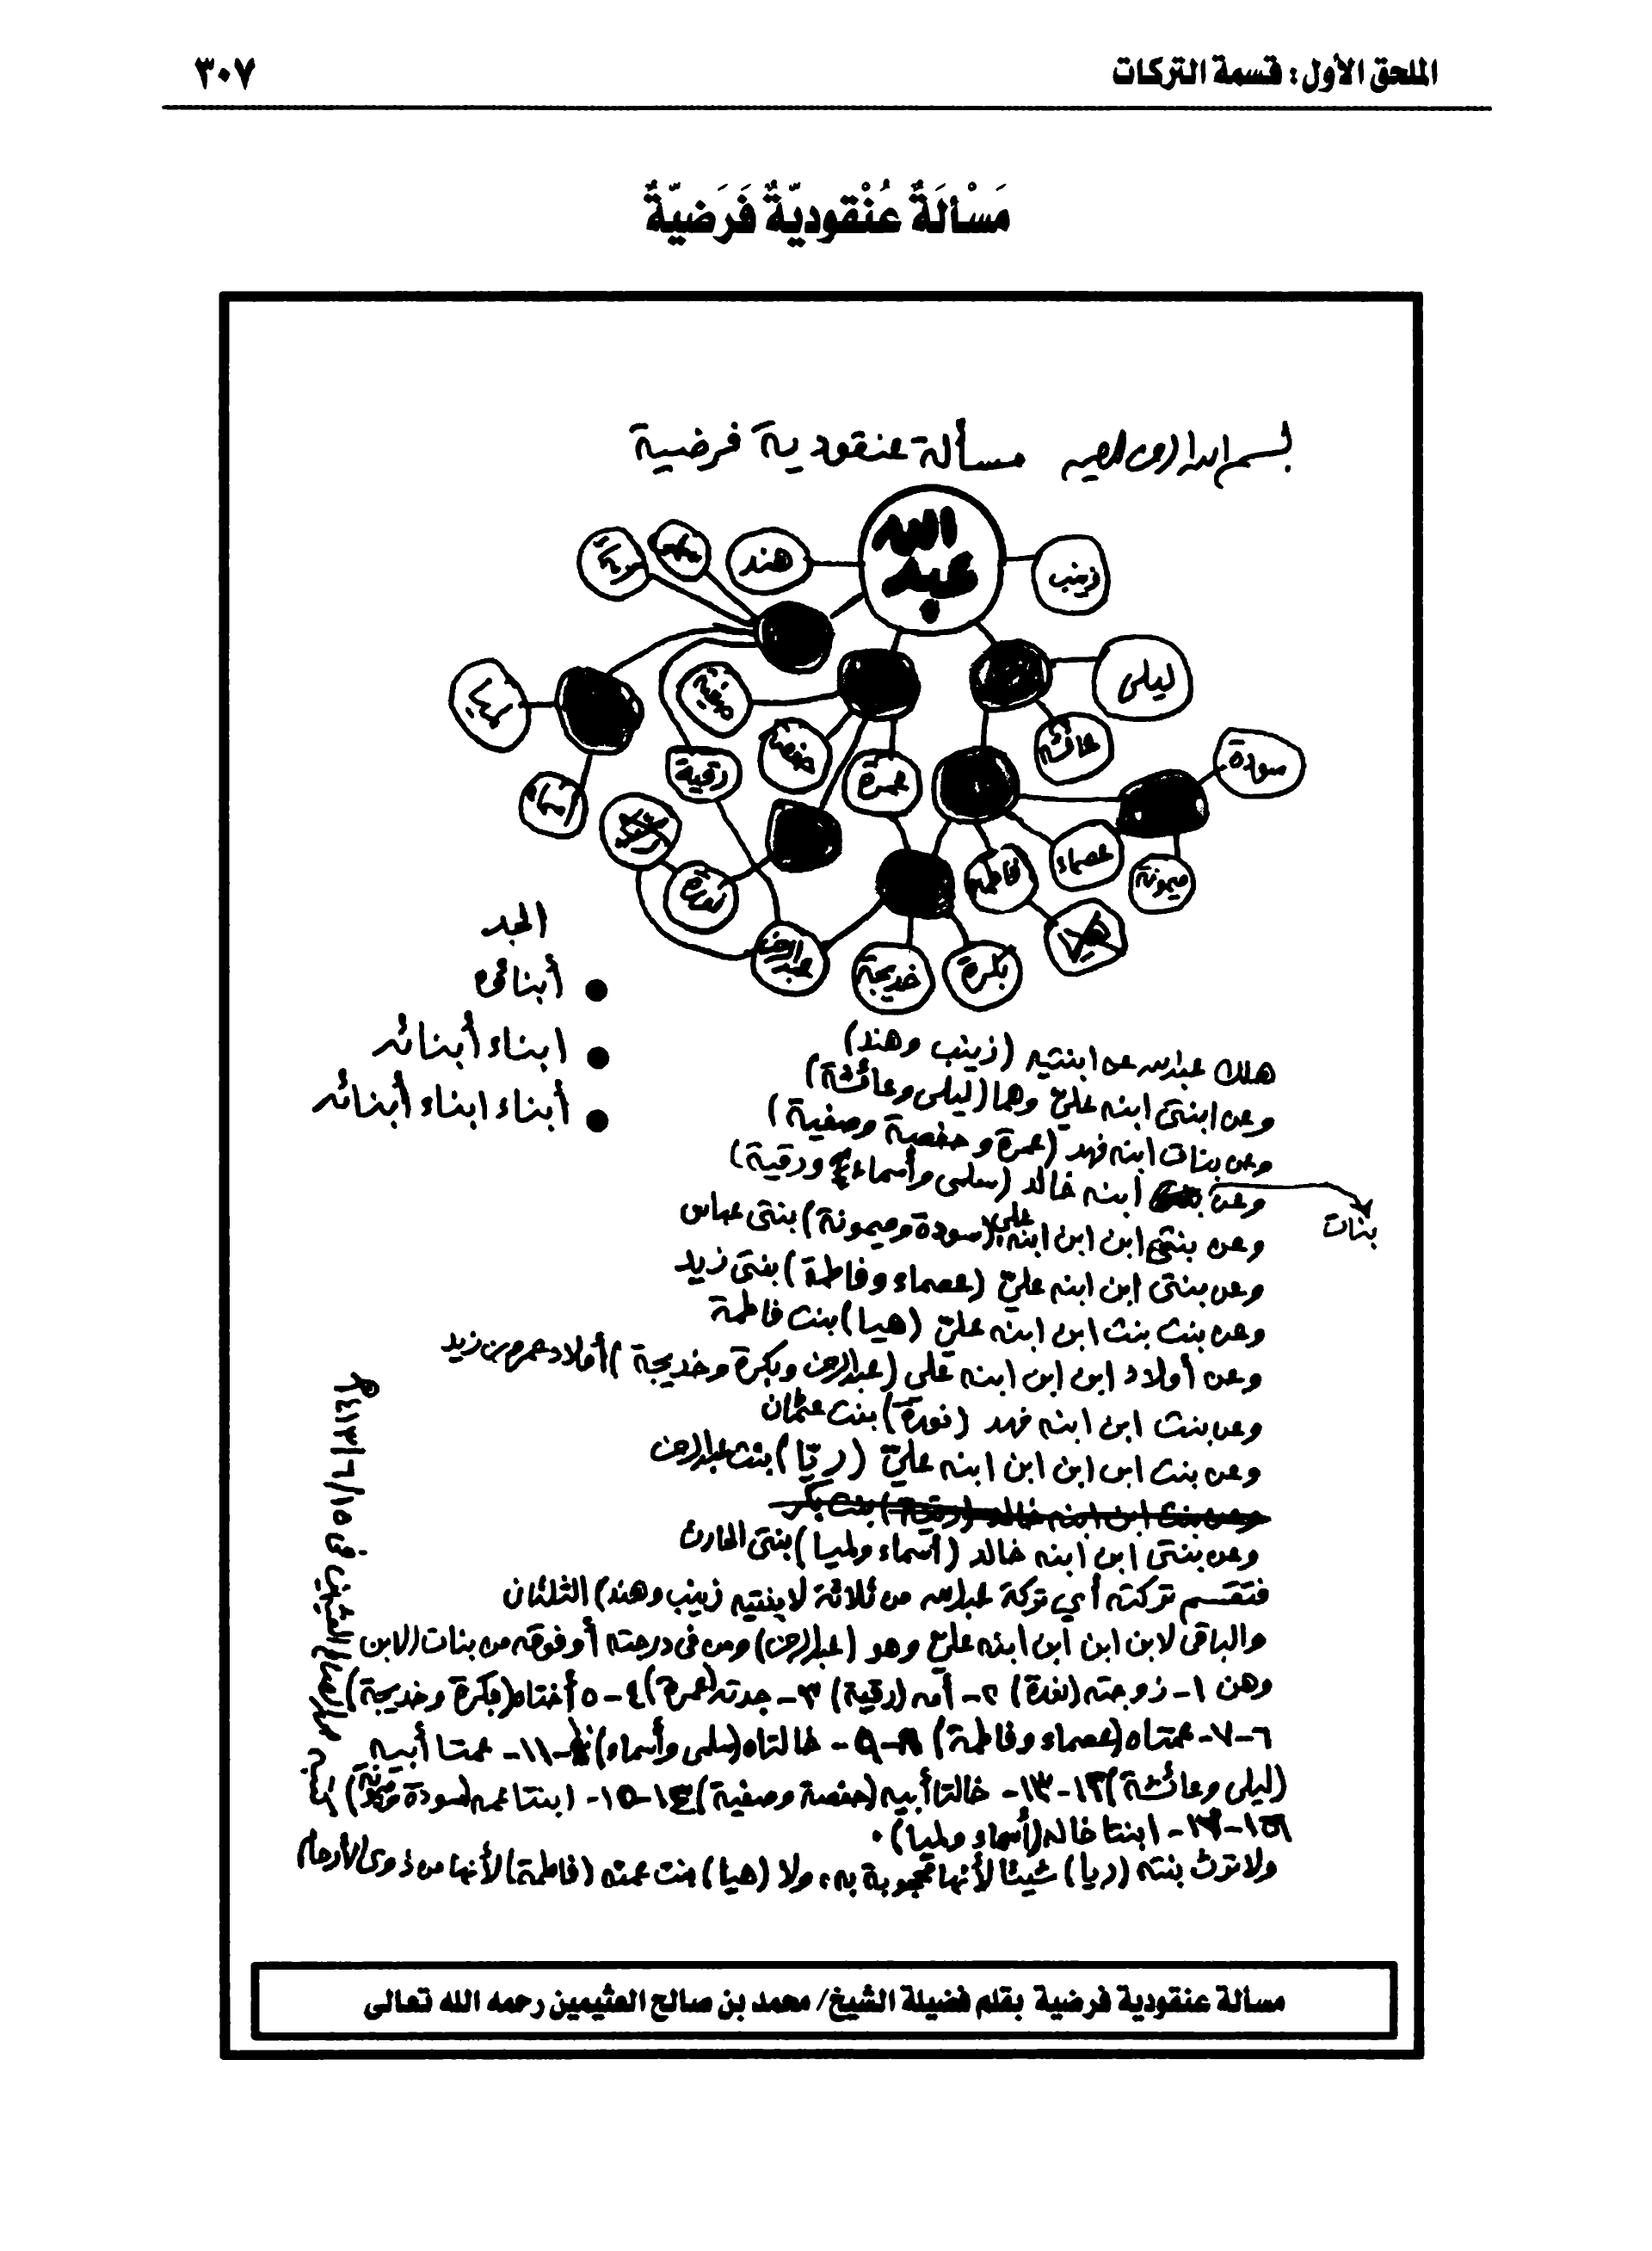 الملحق الأول: قسمة التركات
٣٠٧
مَسْألَةٌ عُنْقوديّةٌ فَرَضيّةٌ
بسم الله الرحمن الرحيم مسألة عنقودية فرضية
عبد الله
زينب
هند
ليلى
عائشة
صفية
حفصة
عمرة
رقية
سودة
ميمونة
عصماء
فاطمة
هيا
بكرة
خديجة
عبدالرحمن
نورة
أسماء
الجد
● أبناؤه
● ابناء أبنائه
● أبناء ابناء أبنائه
هلك عبدالله عن ابنتيه (زينب وهند)
وعن ابنتي ابنه علي وهما (ليلى وعائشة)
وعن بنات ابنه فهد (عمرة و حفصة وصفية)
وعن بنات ابنه خالد (سلمى وأسماء ورقية)
وعن بنتي ابن ابن ابنه علي (سودة وميمونة) بنتي عباس
وعن بنتي ابن ابنه علي (عصماء وفاطمة) بنتي زيد
وعن بنت بنت ابن ابنه علي (هيا) بنت فاطمة
وعن أولاد ابن ابن ابنه علي (عبدالرحمن وبكرة وخديجة) أولاد عمر بن زيد
وعن بنت ابن ابنه فهد (نورة) بنت عثمان
وعن بنت ابن ابن ابن ابنه علي (ريّا) بنت عبدالرحمن
وعن بنت ابن ابنه خالد (رقية) بنت بكر
وعن بنتي ابن ابنه خالد (أسماء ولميا) بنتي الحارث
فتقسم تركته أي تركة عبدالله من ثلاثة لابنتيه زينب وهند) الثلثان
والباقي لابن ابن ابن ابنه علي وهو (عبدالرحمن) ومن في درجته أو فوقه من بنات الابن
وهن ١- زوجته (نورة) ٢- أمه (رقية) ٣- جدته (عمرة) ٤-٥ أختاه (بكرة وخديجة)
٦-٧- عمتاه (عصماء وفاطمة) ٨-٩- خالتاه (سلمى وأسماء) ١٠-١١- عمتا أبيه
(ليلى وعائشة) ١٢-١٣- خالتا أبيه (حفصة وصفية) ١٤-١٥- ابنتا عمه (سودة وميمونة)
١٦-١٧- ابنتا خاله (أسماء ولميا).
ولا ترث بنته (ريا) شيئا لأنها محجوبة به، ولا (هيا) بنت عمته (فاطمة) لأنها من ذوي الأرحام
محمد الصالح العثيمين في ١٥/٦/١٤١٣
مسألة عنقودية فرضية بقلم فضيلة الشيخ/ محمد بن صالح العثيمين رحمه الله تعالى